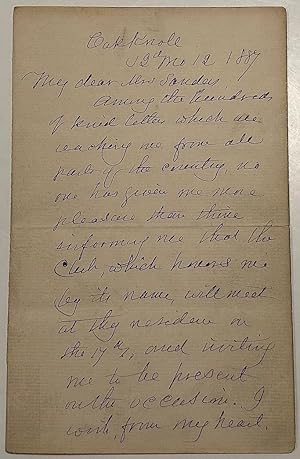 Oak Knoll
12th Mo 12 1887
My dear Mrs
Among the hundreds
of kind letters which are
reaching me from all
parts of the country, no
one has given me more
pleasure than thine
informing me that the
Club, which honors me
by its name, will meet
at thy residence on
the 17th, and inviting
me to be present
on the occasion. I
wish, from my heart,